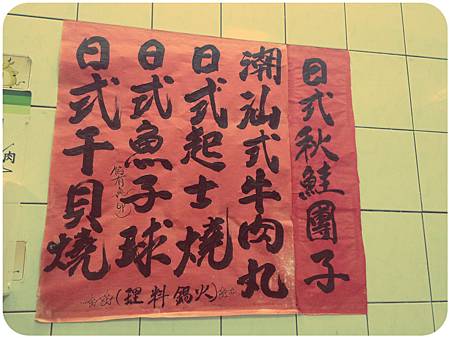 日式秋鮭團子
潮汕式牛肉丸
日式起士燒
日式魚子球
日式干貝燒
(理料鍋火)
肉